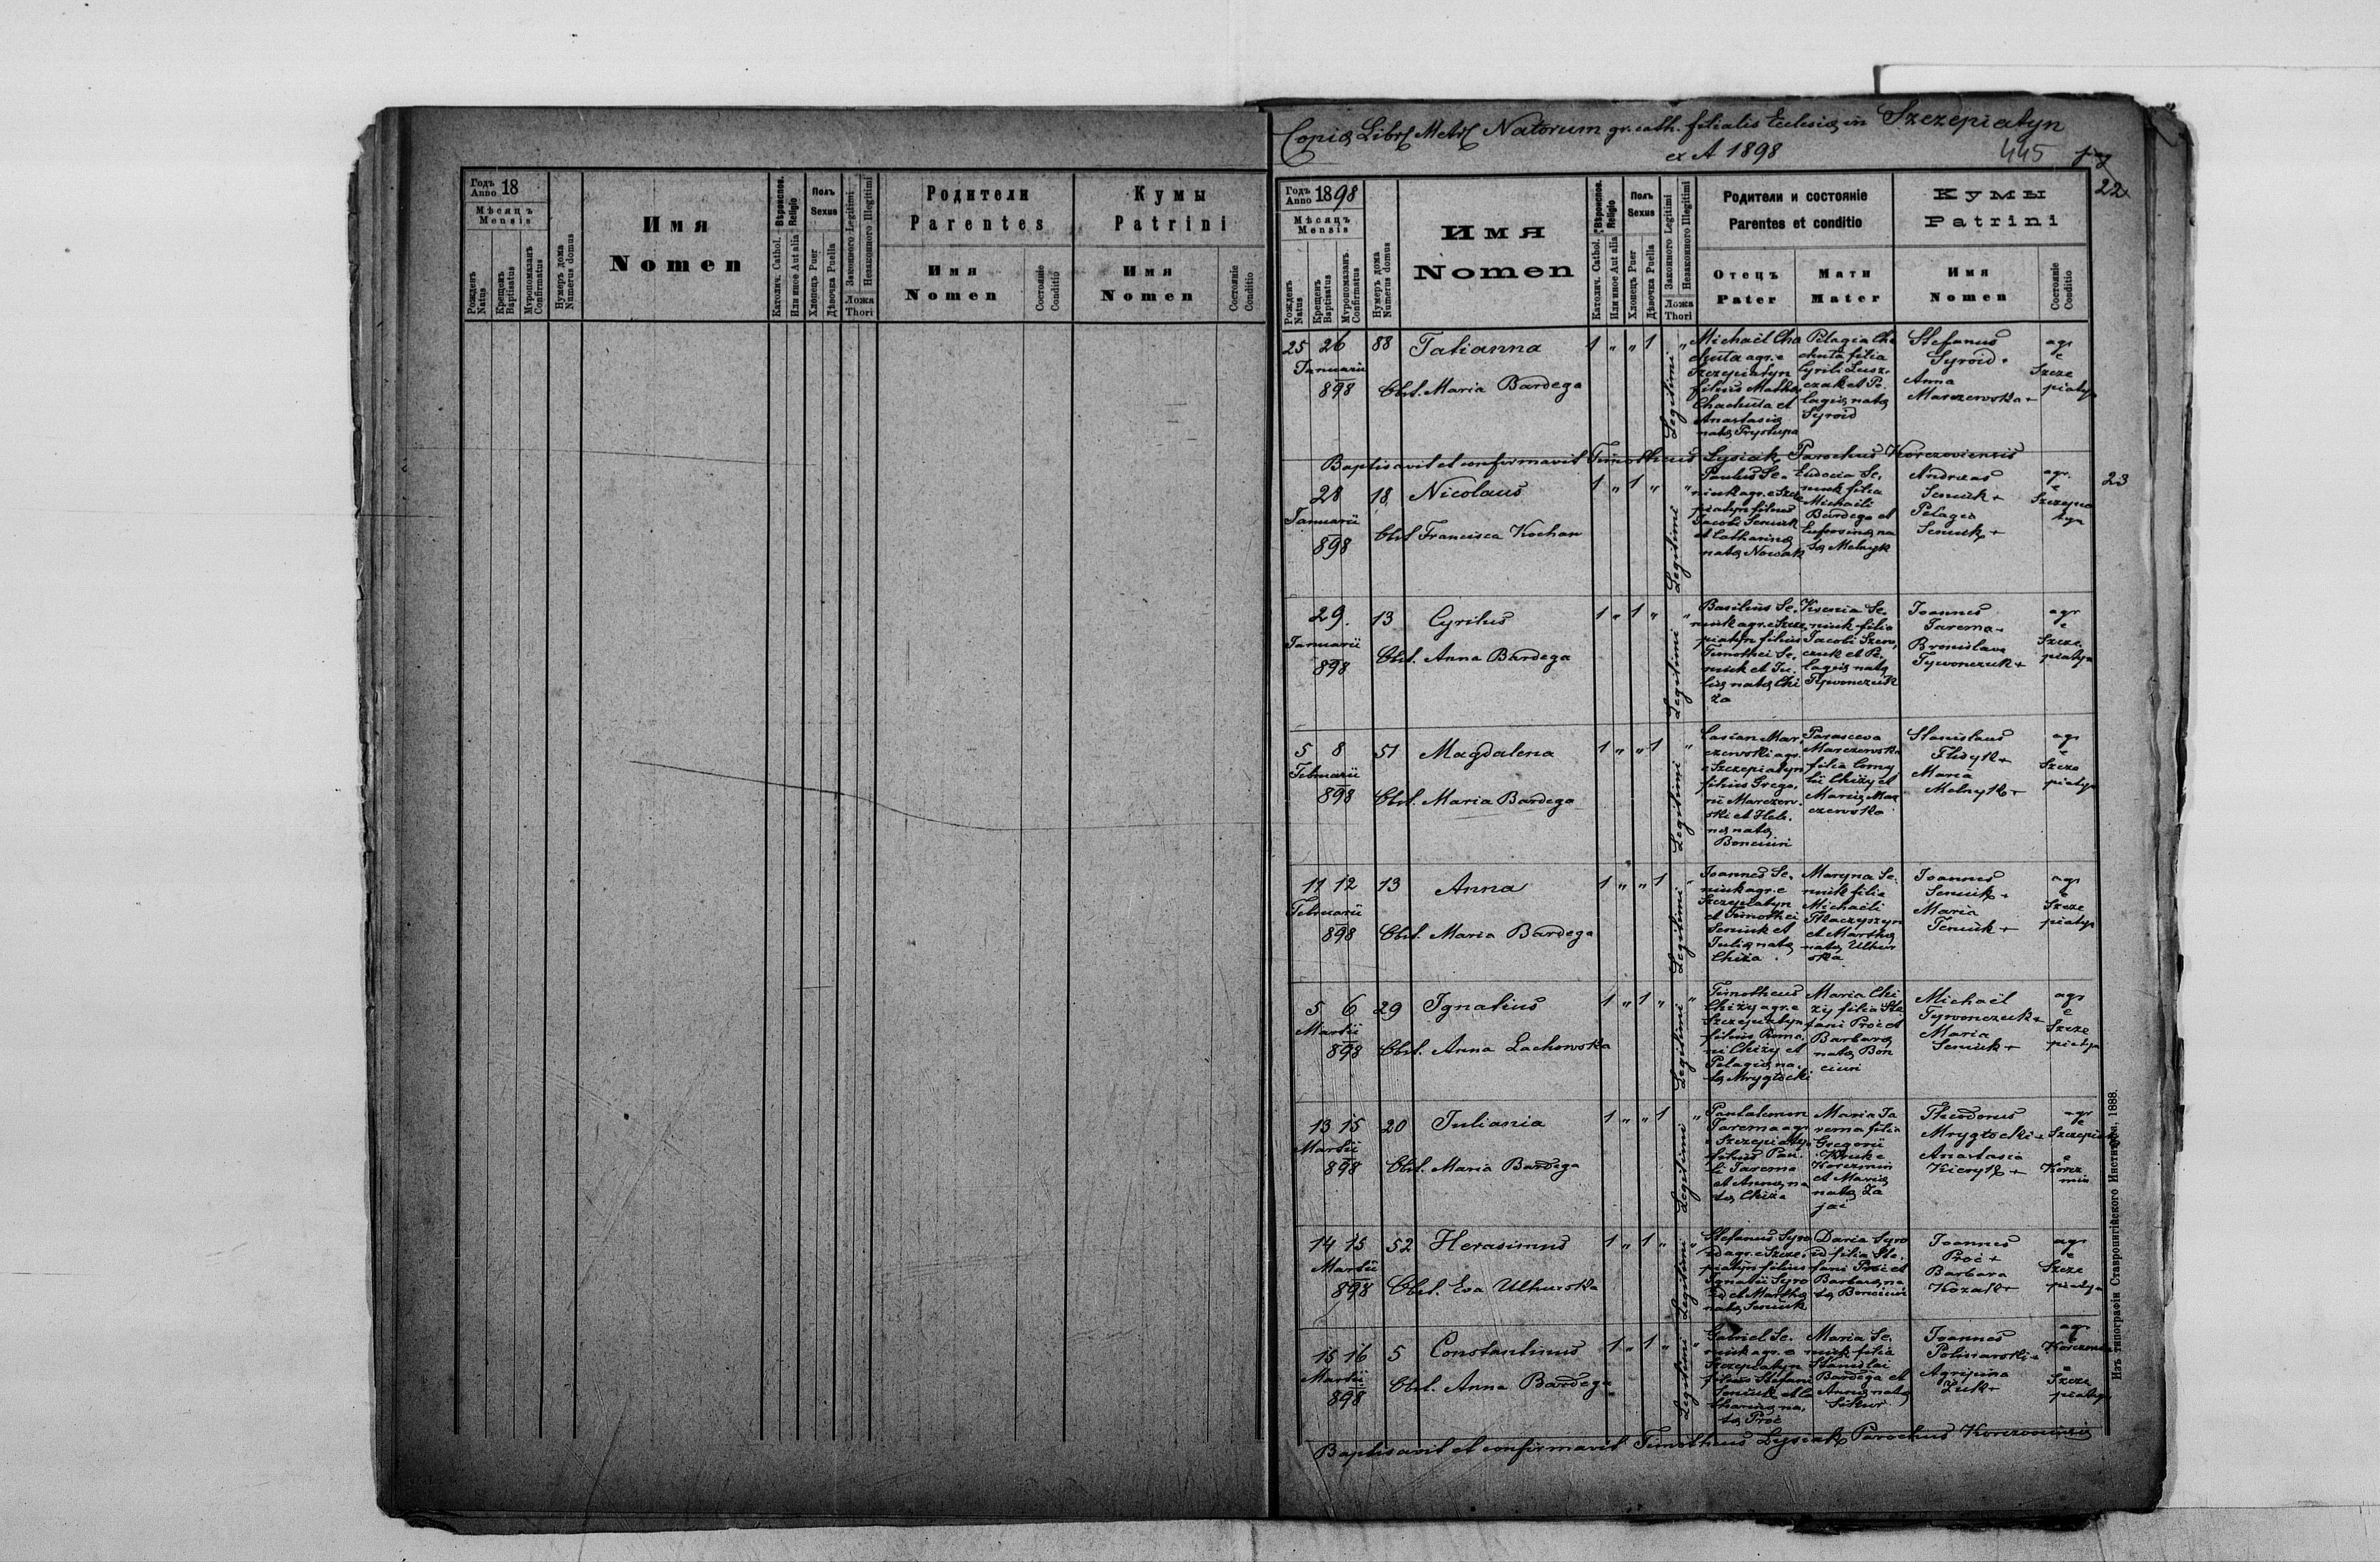 Годъ Anno 18
Мѣсяцъ
Mensis
Рожденъ Natus
Крещенъ Baptisatus
Мѵропомазанъ Confirmatus
Нумеръ дома Numerus domus
Имя
Nomen
Вѣроиспов. Religio
Католич. Cathol.
Или иное Aut alia
Полъ
Sexus
Хлопецъ Puer
Дѣвочка Puella
Законного Legitimi
Незаконного Illegitimi
Ложа
Thori
Родители
Parentes
Имя
Nomen
Состояніе Conditio
Кумы
Patrini
Имя
Nomen
Состояніе Conditio
Copia Libri Metr. Natorum gr. cath. filialis Eclesia in Szczepiatyn
ex A 1898
445
22
Годъ Anno 1898
Мѣсяцъ
Mensis
Рожденъ Natus
Крещенъ Baptisatus
Мѵропомазанъ Confirmatus
Нумеръ дома Numerus domus
Имя
Nomen
Вѣроиспов. Religio
Католич. Cathol.
Или иное Aut alia
Полъ
Sexus
Хлопецъ Puer
Дѣвочка Puella
Законного Legitimi
Незаконного Illegitimi
Ложа
Thori
Родители и состояніе
Parentes et conditio
Отецъ
Pater
Мати
Mater
Кумы
Patrini
Имя
Nomen
Состояніе Conditio
25 26 88 Tatianna 1 " " 1 "
Januarii
898 Obst. Maria Bardega
Legitimi
Michaël Cha
chuta agr. e
Szczepiatyn
filius
Chachuta et
Anastasia
nata Prystupa
Pelagia Cha
chuta filia
Cyrili Lusz-
czak et Pe-
lagia nata
Syroid
Stefanus
Syroid
Anna
Marczewska +
agr
e
Szcze
piatyn
Baptisavit et confirmavit Timotheus Lysiak Parochus Korczoviensis
23
28 18 Nicolaus 1 " 1 " "
Januarii
898 Obst Francisca Kochan
Legitimi
Paulus Se-
niuk agr. e Szcze
piatyn filius
Jacobi Seniuk
et Catharina
nata Nowak
Eudocia Se-
niuk filia
Michaili
Bardega et
Eufrosina na
ta Melnyk
Andreas
Seniuk +
Pelagia
Seniuk +
agr.
e
Szczepia
tyn
29. 13 Cyrilus 1 " 1 " "
Januarii
898 Obst. Anna Bardega
Legitimi
Basilius Se-
niuk agr. e Szcze
piatyn filius
Timothei Se-
niuk et Ju-
lia nata Chi
ża
Ksenia Se-
niuk filia
Jacobi Szew-
czuk et Pe-
lagia nata
Tywonczuk
Joannes
Jarema
Bronislava
Tywonczuk +
agr
e
Szcze
piatyn
5 8 51 Magdalena 1 " " 1 "
Februarii
898 Obst. Maria Bardega
Legitimi
Casian Mar-
czewski agr.
e Szczepiatyn
filius Grego-
rii Marczew-
ski et Hele-
na nata
Bonciuri
Parasceva
Marczewska
filia Corny
lii Chiży et
Maria Mar
czewska
Stanislaus
Hudyk +
Maria
Melnyk +
agr
e
Szcze
piatyn
11 12 13 Anna 1 " " 1 "
Februarii
898 Obst. Maria Bardega
Legitimi
Joannes Se-
niuk agr. e
Szczepiatyn
et Timothei
Seniuk et
Julia nata
Chiża
Maryna Se-
niuk filia
Michaili
Tkaczyszyn
et Martha
nata Uhur
ska
Joannes
Seniuk +
Maria
Seniuk +
agr
e
Szcze
piatyn
5 6 29 Ignatius 1 " 1 " "
Martii
898 Obst. Anna Lachowska
Legitimi
Timotheus
Chiży agr. e
Szczepiatyn
filius Roma
ni Chiży et
Pelagia na-
ta Mrygłocki
Maria Chi
ży filia Ste
fani Proć et
Barbara
nata Bon
ciuri
Michaël
Tywonczuk +
Maria
Seniuk +
agr
e
Szcze
piatyn
13 15 20 Juliania 1 " " 1 "
Martii
898 Obst. Maria Bardega
Legitimi
Pantalemon
Jarema agr
e Szczepiatyn
filius Pau-
li Jarema
et Anna na
ta Chiża
Maria Ja
rema filia
Gregorii
Kruk e
Korczmin
et Maria
nata Za
jać
Theodorus
Mrygłocki +
Anastasia
Kieryk +
agr
e
Szczepiatyn
e
Korcz
min
14 15 52 Herasimus 1 " 1 " "
Martii
898 Obst. Eva Uhurska
Legitimi
Stefanus Syro
id agr. e Szcze-
piatyn filius
Ignatii Syro
id et Martha
nata Seniuk
Daria Syro
id filia Ste-
fani Proć et
Barbara na
ta Bonciuri
Joannes
Proć +
Barbara
Kozak +
agr
e
Szcze
piatyn
15 16 5 Constantinus 1 " 1 " "
Martii
898 Obst. Anna Bardega
Legitimi
Gabriel Se-
niuk agr. e
Szczepiatyn
filius Stefani
Seniuk et Ca
tharina na-
ta Proć
Maria Se-
niuk filia
Stanislai
Bardega et
Anna nata
Joannes
Agripina
Żuk +
agr
e
Korczmin
e
Szcze
piatyn
Baptisavit et confirmavit Timotheus Lysiak Parochus Korczoviensis
Изъ типографіи Ставропигійского Института, 1888.